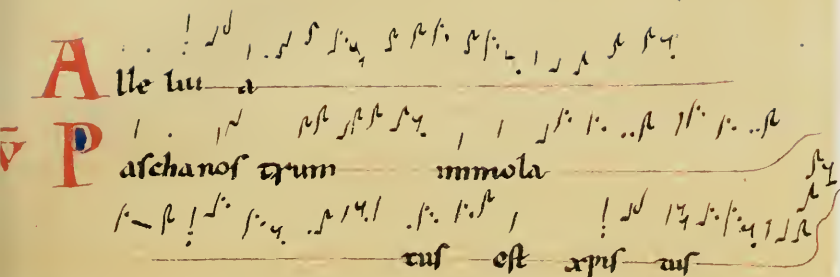 Alle lui a
v̄ Paschanos trum immola
tus est xpis tus